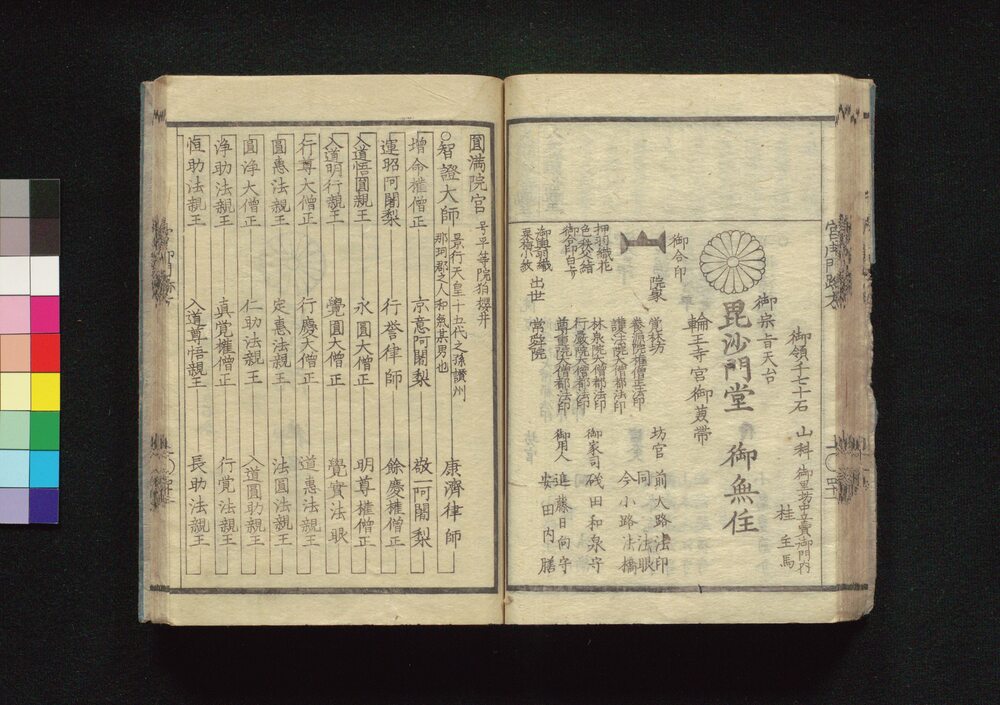 御領千七十石 山科 御里坊中立賣御門内
桂主馬
御宗旨天台
毘沙門堂 御無住
輪王寺宮御兼帯
御合印
院家
覚林坊
養源院権僧正法印
護法院大僧都法印
林泉院大僧都法印
行嚴院大僧都法印
尊重院大僧都法印
出世
常舜院
押羽織花
色秩父緒
御合印白号
御輿羽織
栗梅小紋
坊官 前大路法印
同 法眼
今小路法橋
御家司 磯田和泉守
御用人 進藤日向守
安田内膳
圓満院宮 号平等院狛櫻井
○智證大師 景行天皇十五代之孫讃州
那珂郡之人和氣某男也
康濟律師
増命権僧正 京意阿闍梨 敬一阿闍梨
運昭阿闍梨 行誉律師 餘慶権僧正
入道悟圓親王 永圓大僧正 明尊権僧正
入道明行親王 覺圓大僧正 覺實法眼
行尊大僧正 行慶大僧正 道惠法親王
圓惠法親王 定惠法親王 法圓法親王
圓浄大僧正 仁助法親王 入道圓助親王
浄助法親王 真覚権僧正 行覚法親王
恒助法親王 入道尊悟親王 長助法親王